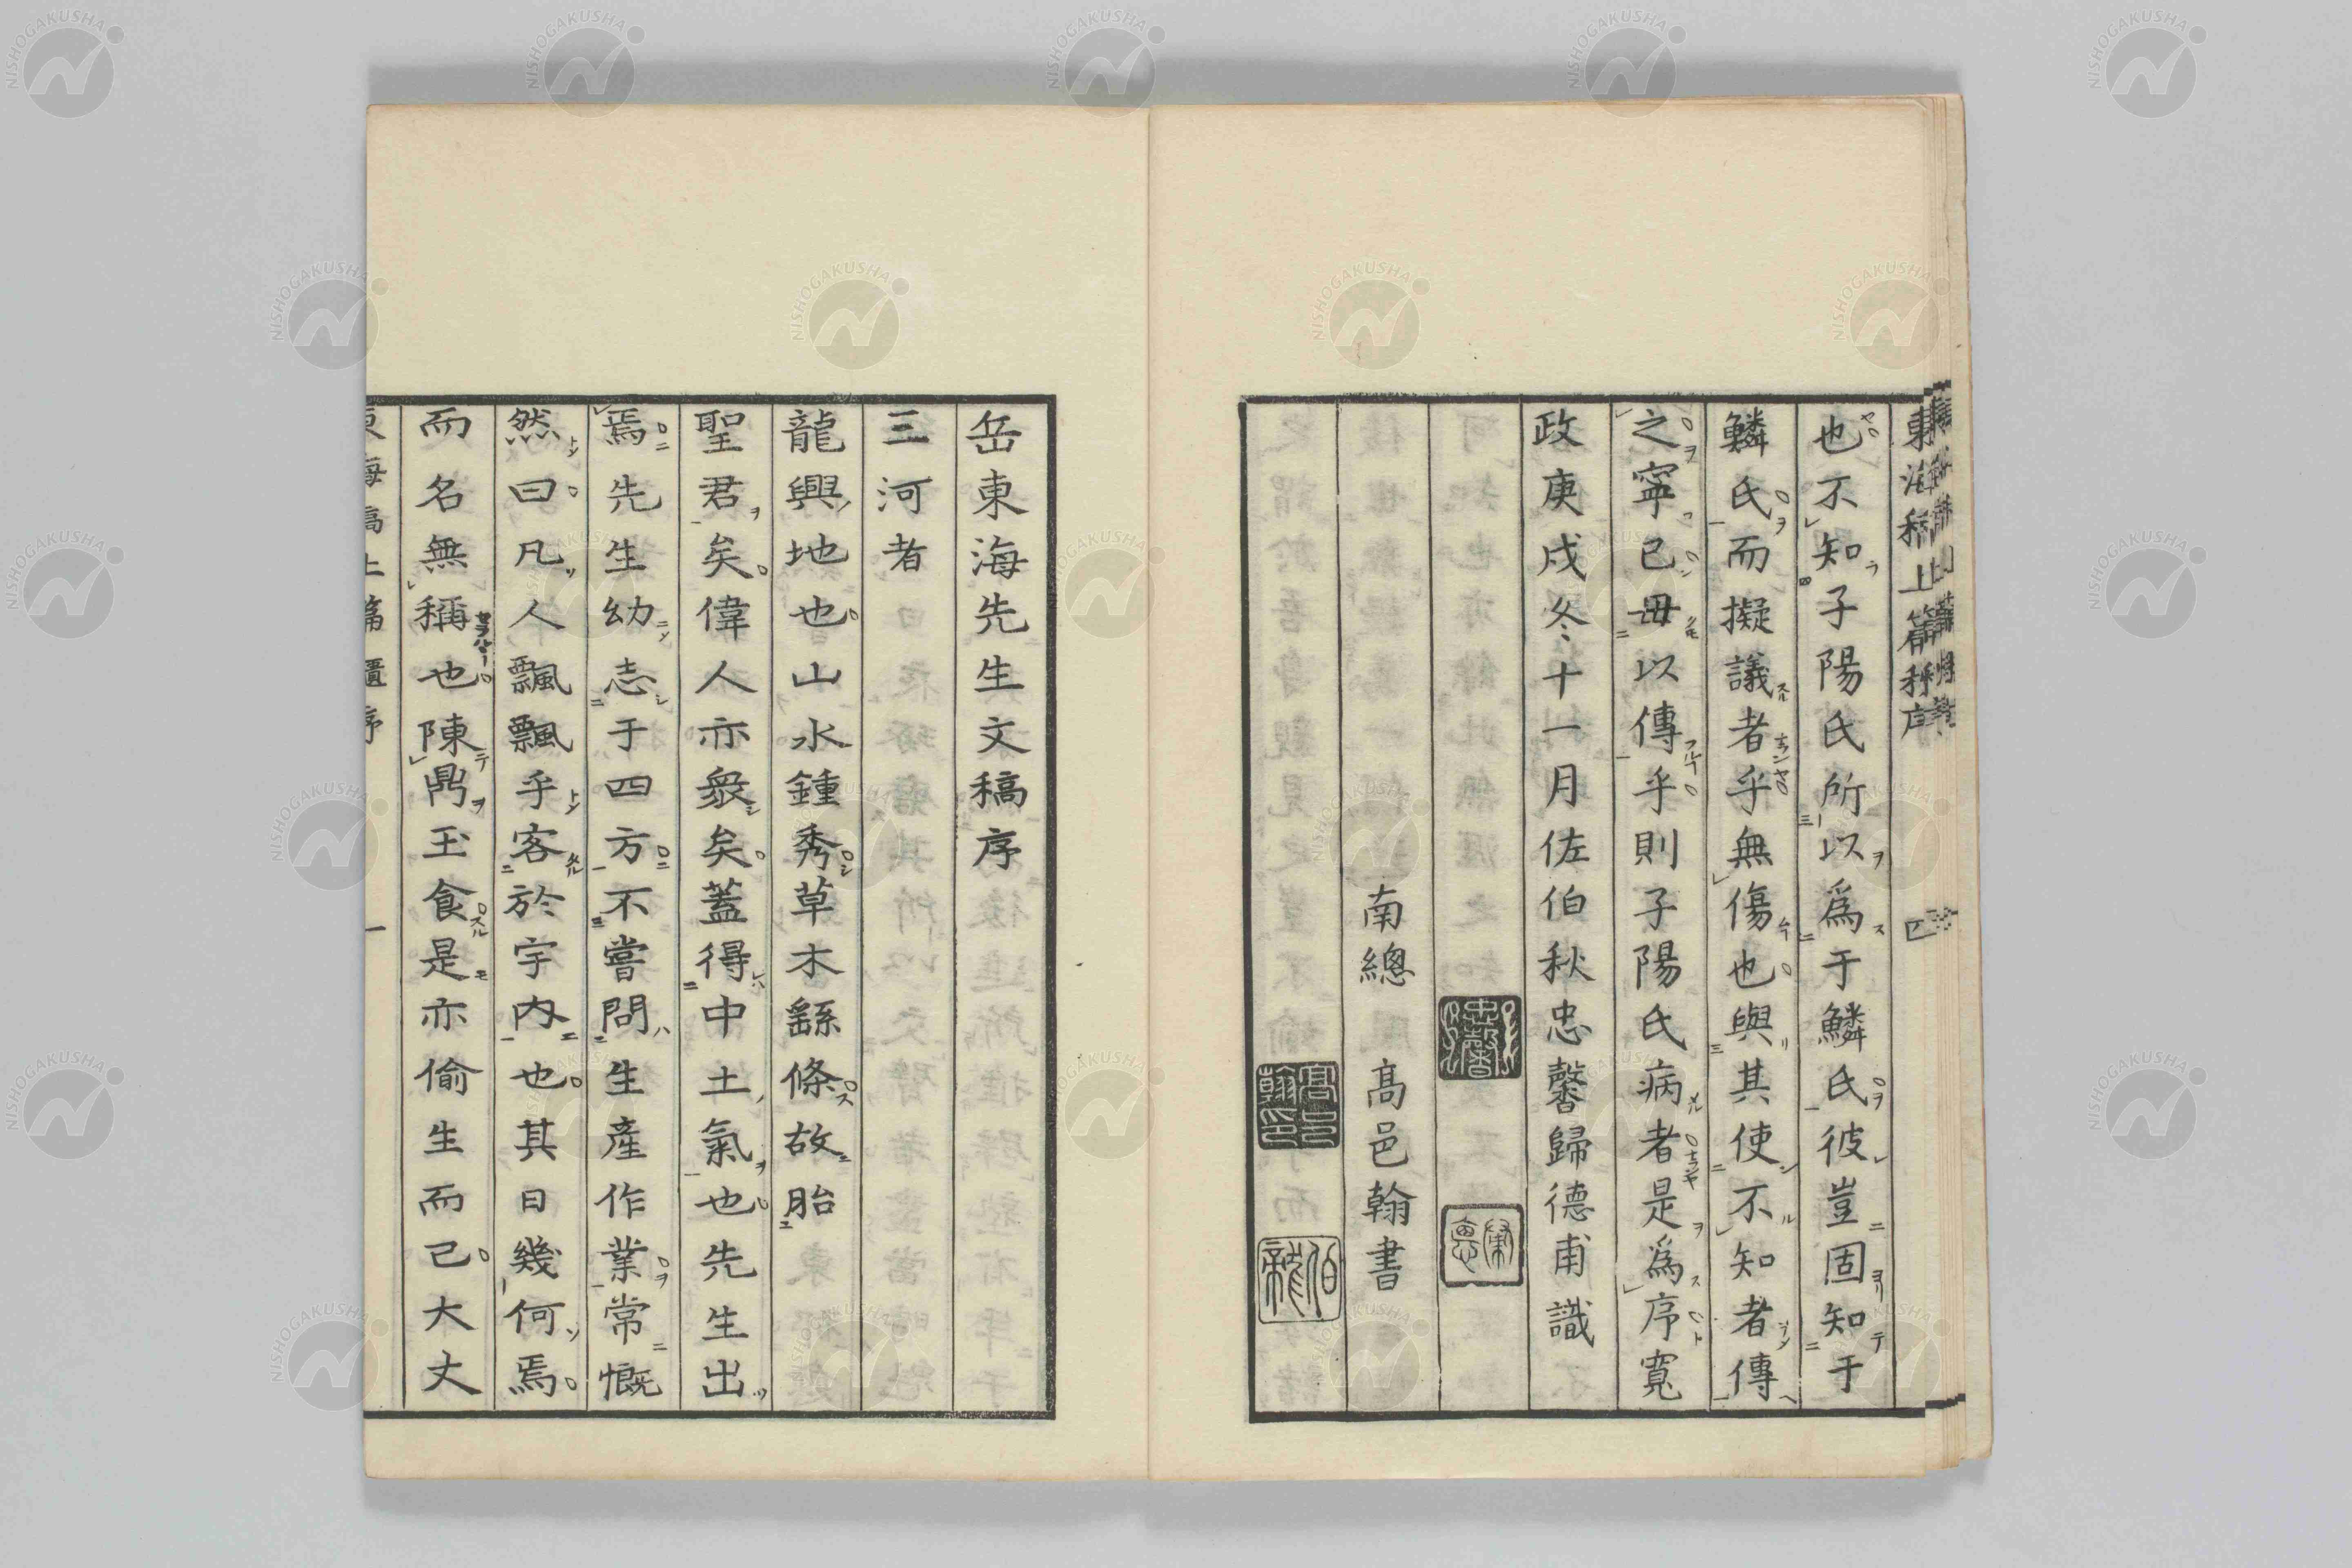 也不知子陽氏所以爲于鱗氏彼豈固知于
鱗氏而擬議者乎無傷也與其使不知者傳
之寧已毋以傳乎則子陽氏病者是爲序寬
政庚戌冬十一月佐伯秋忠馨歸德甫識
南總 高邑翰書
高邑翰印
伯龍
岳東海先生文稿序
三河者
龍興地也山水鍾秀草木繇條故胎
聖君矣偉人亦衆矣蓋得中土氣也先生出
焉先生幼志于四方不嘗問生產作業常慨
然曰凡人飄飄乎客於宇內也其日幾何焉
而名無稱也陳鼎玉食是亦偷生而已大丈
東海稿上篇 序 一
NISHOGAKUSHA